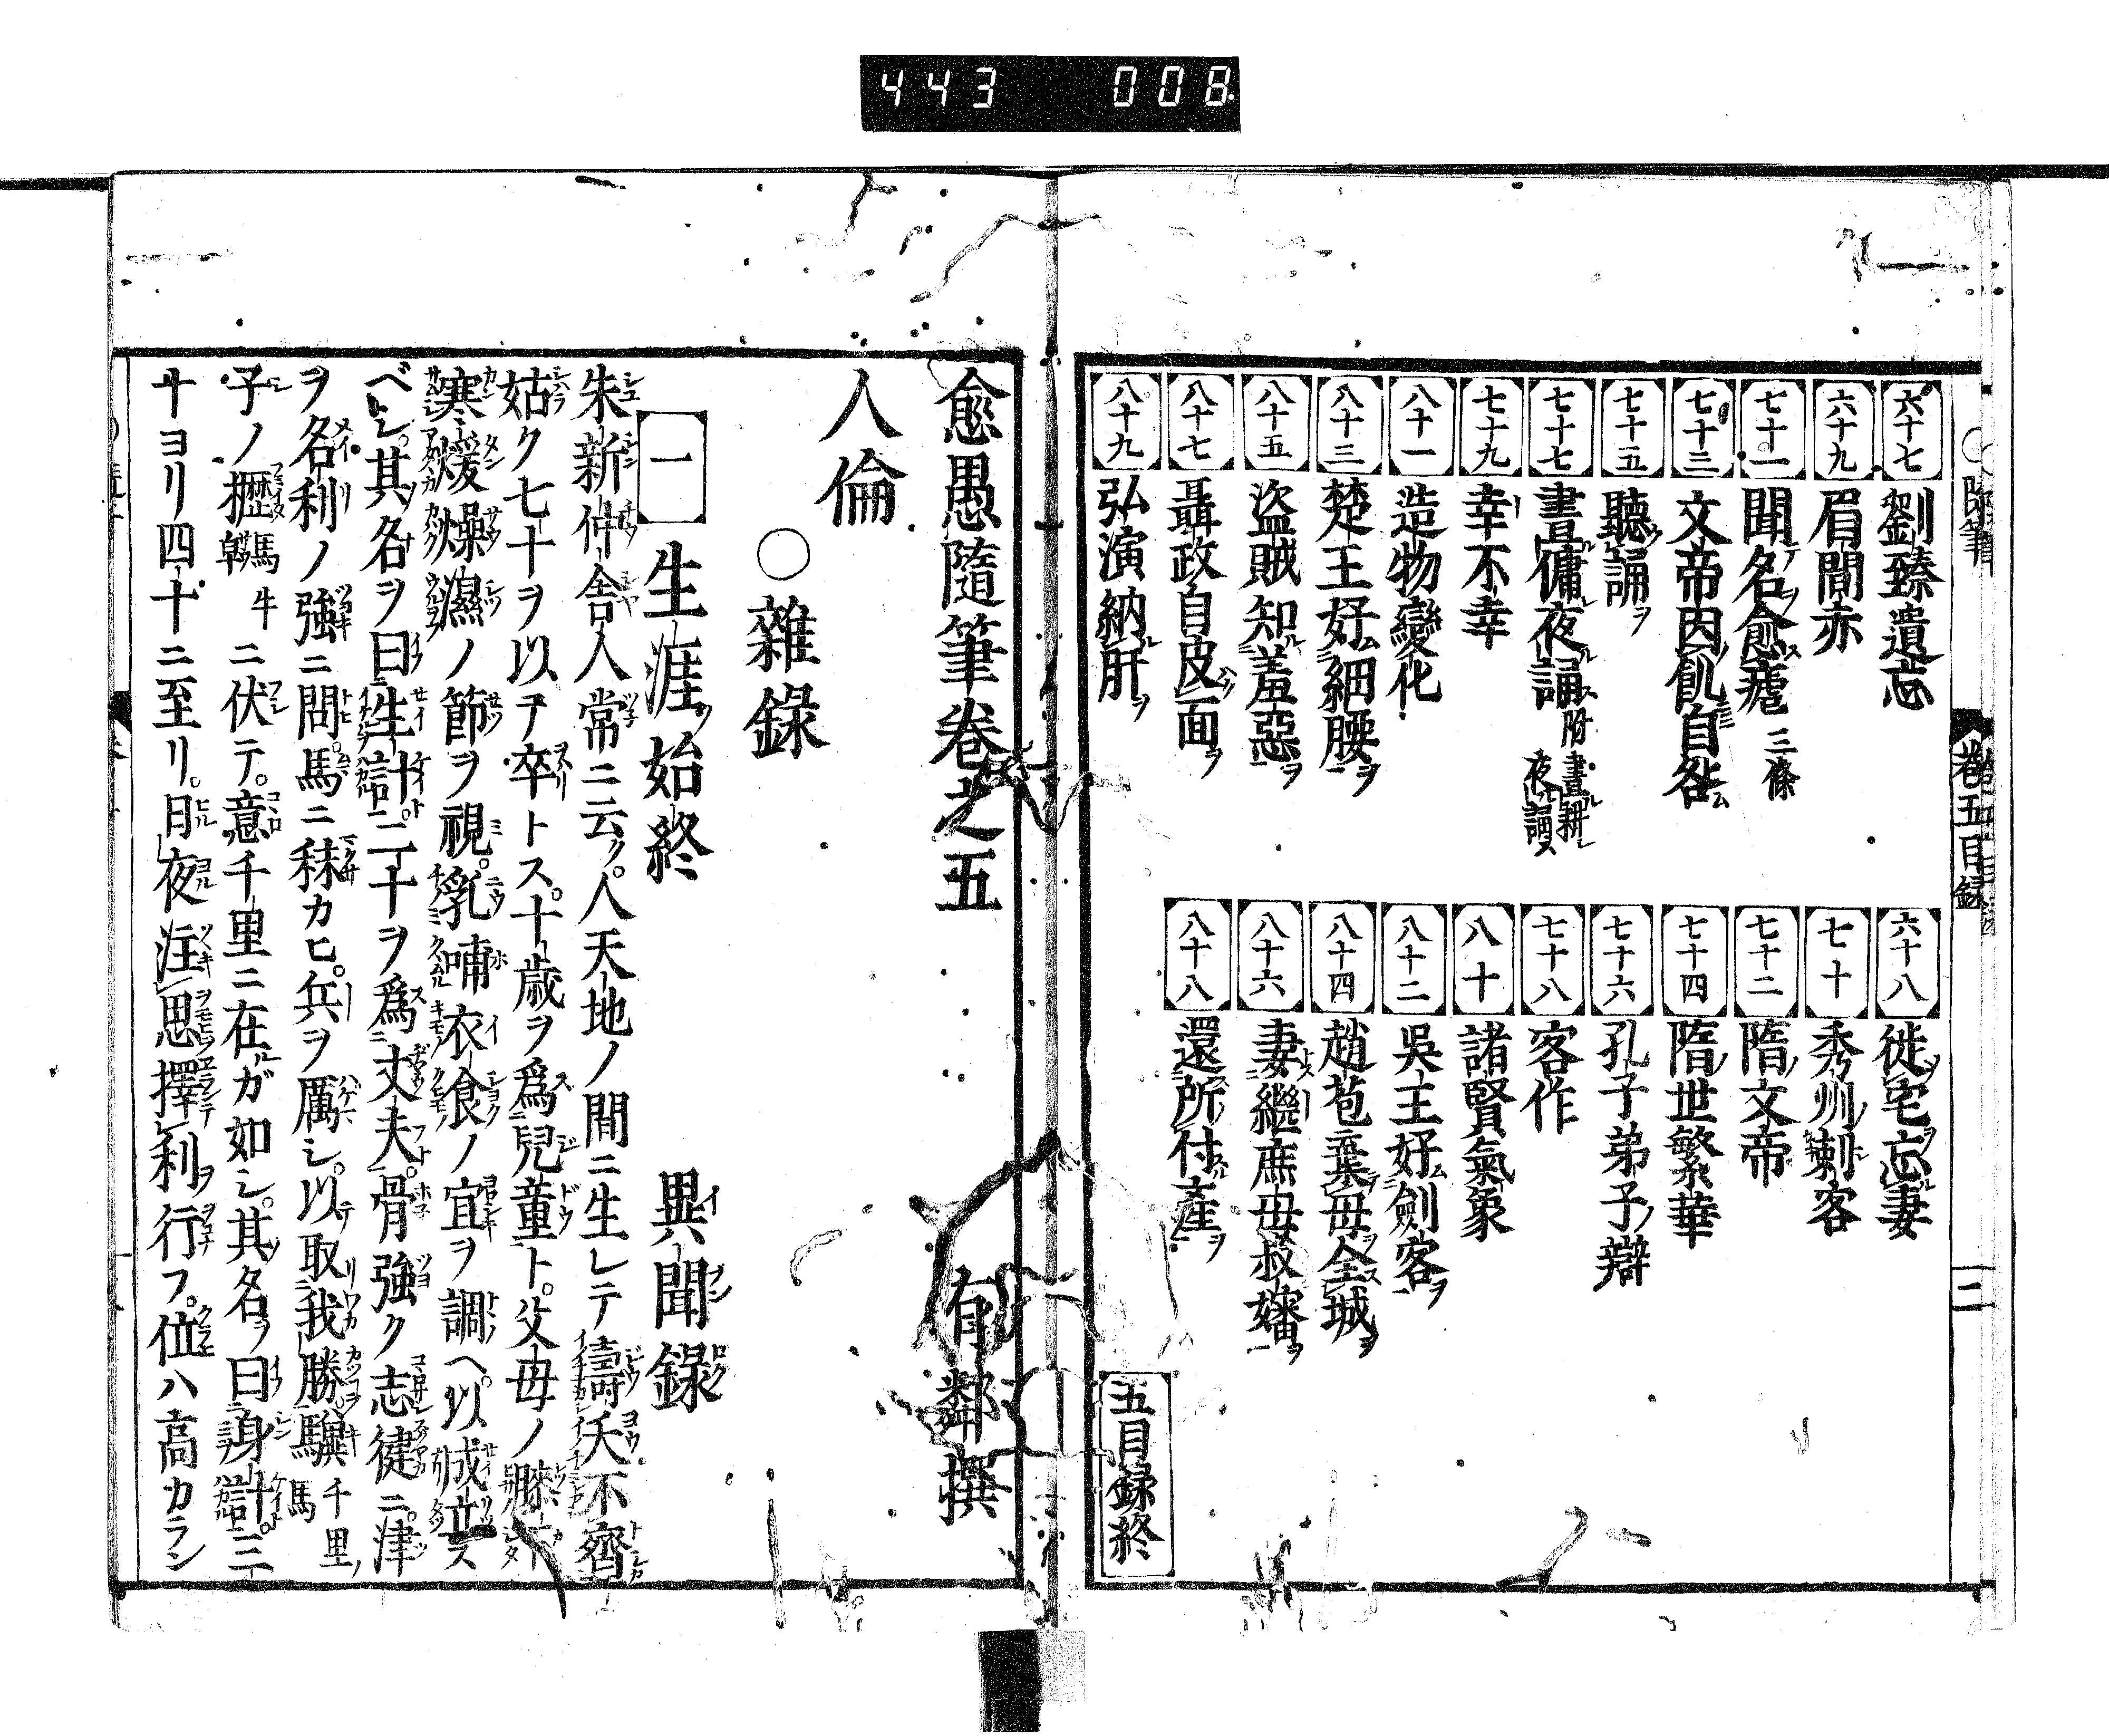 443 008
隨筆
卷五目録
二
六十七 劉臻遺忘
六十八 徙宅忘妻
六十九 眉間赤
七十 秀州刺客
七十一 聞名愈瘧 三條
七十二 隋文帝
七十三 文帝因飢自咎
七十四 隋世繁華
七十五 聽誦
七十六 孔子弟子辯
七十七 晝傭夜誦 附 晝耕夜誦
七十八 客作
七十九 幸不幸
八十 諸賢氣象
八十一 造物變化
八十二 吳王好劍客
八十三 楚王好細腰
八十四 趙苞棄母全城
八十五 盗賊知羞惡
八十六 妻繼庶母叔嬸
八十七 聶政自皮面
八十八 還所付產
八十九 弘演納肝
五目録終
愈愚隨筆卷之五
有鄰撰
人倫
○雜錄
一 生涯始終 異聞錄
朱新仲舎人常ニ云ク。人天地ノ間ニ生レテ壽夭不齊
姑ク七十ヲ以テ卒トス。十歳ヲ爲兒童ト。父母ノ膝下
寒煖燥濕ノ節ヲ視。乳哺衣食ノ宜ヲ調ヘ。以成立ス
ベシ。其名ヲ曰生計。二十ヲ爲丈夫。骨強ク志健ニ。津
ヲ名利ノ強ニ問。馬ニ秣カヒ。兵ヲ厲シ。以取我勝。驥千里ノ馬
子ノ櫪馬牛ニ伏テ。意千里ニ在ルガ如シ。其名ヲ曰身計。三
十ヨリ四十ニ至リ。日夜注思擇利行フ。位ハ高カラン